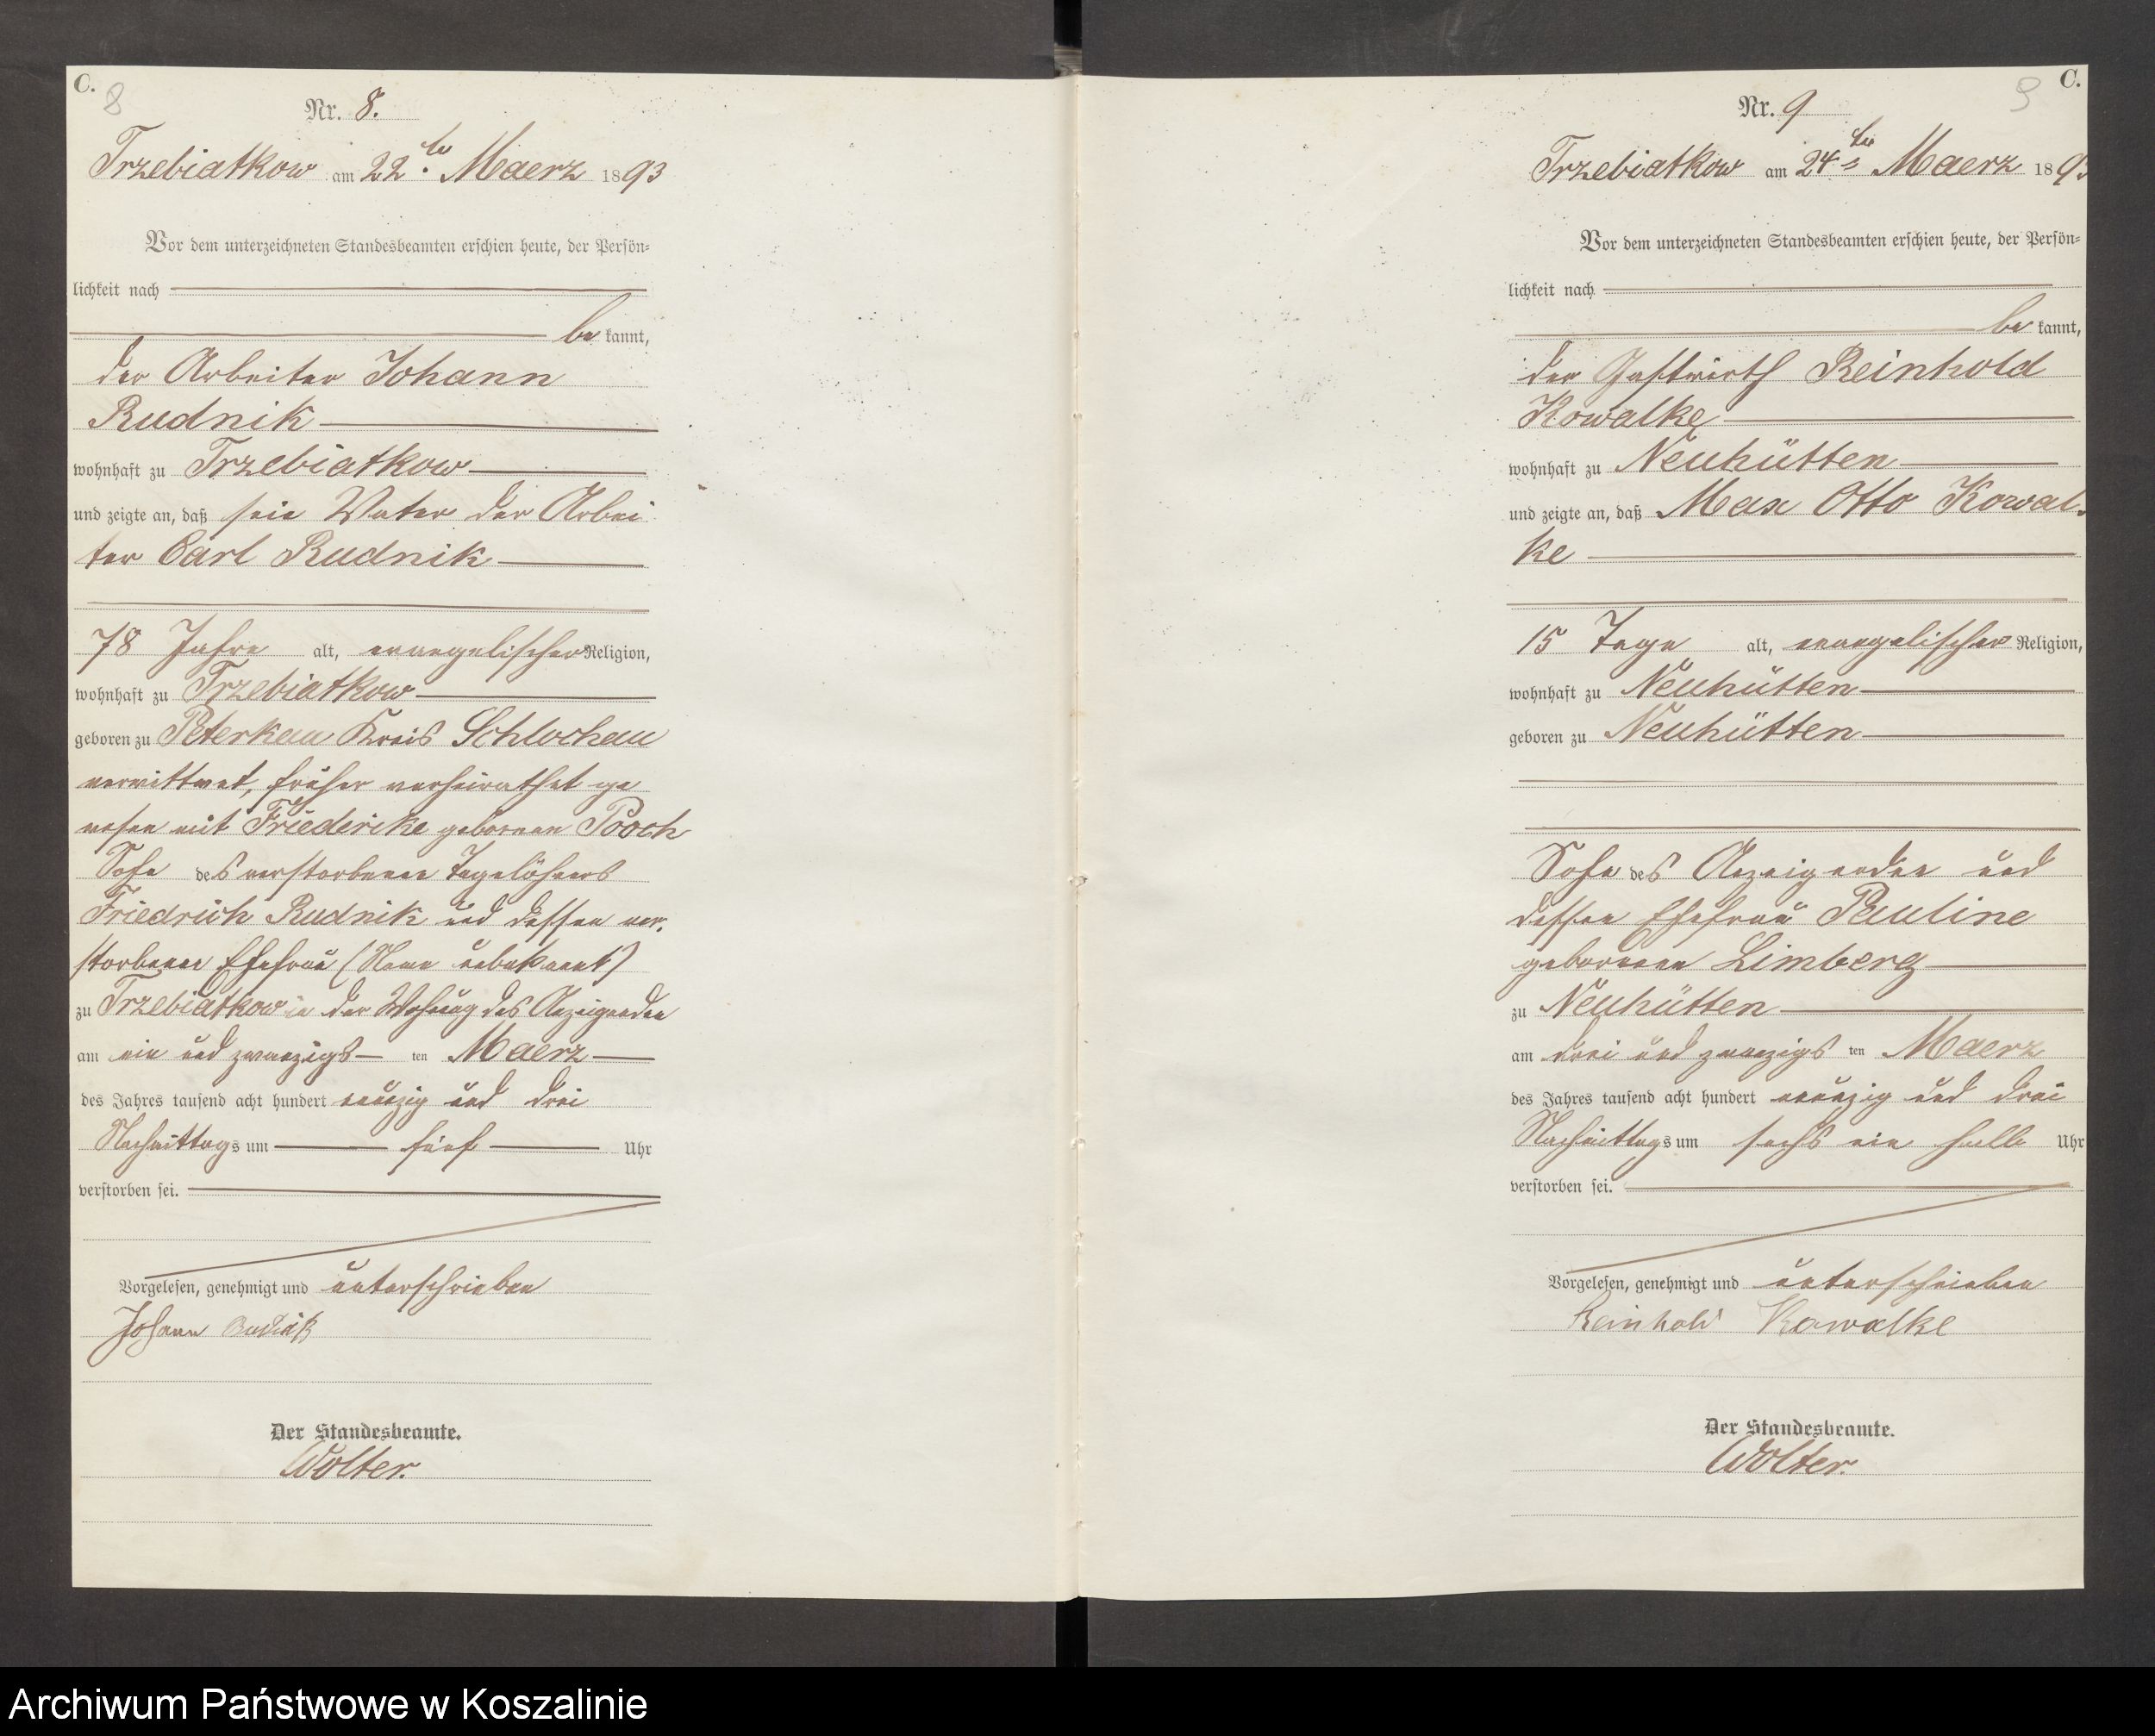 C.
8
Nr. 8.
Trzebiatkow am 22ten Maerz 1893
Vor dem unterzeichneten Standesbeamten erschien heute, der Persön-
lichkeit nach
be kannt,
der Arbeiter Johann
Rudnik
wohnhaft zu Trzebiatkow
und zeigte an, daß sein Vater der Arbei
ter Carl Rudnik
78 Jahre alt, evangelischer Religion,
wohnhaft zu Trzebiatkow
geboren zu Peterkau Kreis Schlochau
verwittwet, früher verheirathet ge
wesen mit Friederike geborenen Pooch
Sohn des verstorbenen Tagelöhners
Friedrich Rudnik und dessen ver-
storbenen Ehefrau (Name unbekannt)
zu Trzebiatkow in der Wohnung des Anzeigenden
am ein und zwanzigs ten Maerz
des Jahres tausend acht hundert neunzig und drei
Nachmittags um fünf Uhr
verstorben sei.
Vorgelesen, genehmigt und unterschrieben
Johann Rudnik
Der Standesbeamte.
Wolter.
C.
9
Nr. 9
Trzebiatkow am 24ten Maerz 1893
Vor dem unterzeichneten Standesbeamten erschien heute, der Persön-
lichkeit nach
be kannt,
der Gastwirth Reinhold
Kowalke
wohnhaft zu Neuhütten
und zeigte an, daß Max Otto Kowal-
ke
15 Tage alt, evangelischer Religion,
wohnhaft zu Neuhütten
geboren zu Neuhütten
Sohn des Anzeigenden und
dessen Ehefrau Pauline
geborenen Limberg
zu Neuhütten
am drei und zwanzigs ten Maerz
des Jahres tausend acht hundert neunzig und drei
Nachmittags um sechs ein halb Uhr
verstorben sei.
Vorgelesen, genehmigt und unterschrieben
Reinhold Kowalke
Der Standesbeamte.
Wolter.
Archiwum Państwowe w Koszalinie